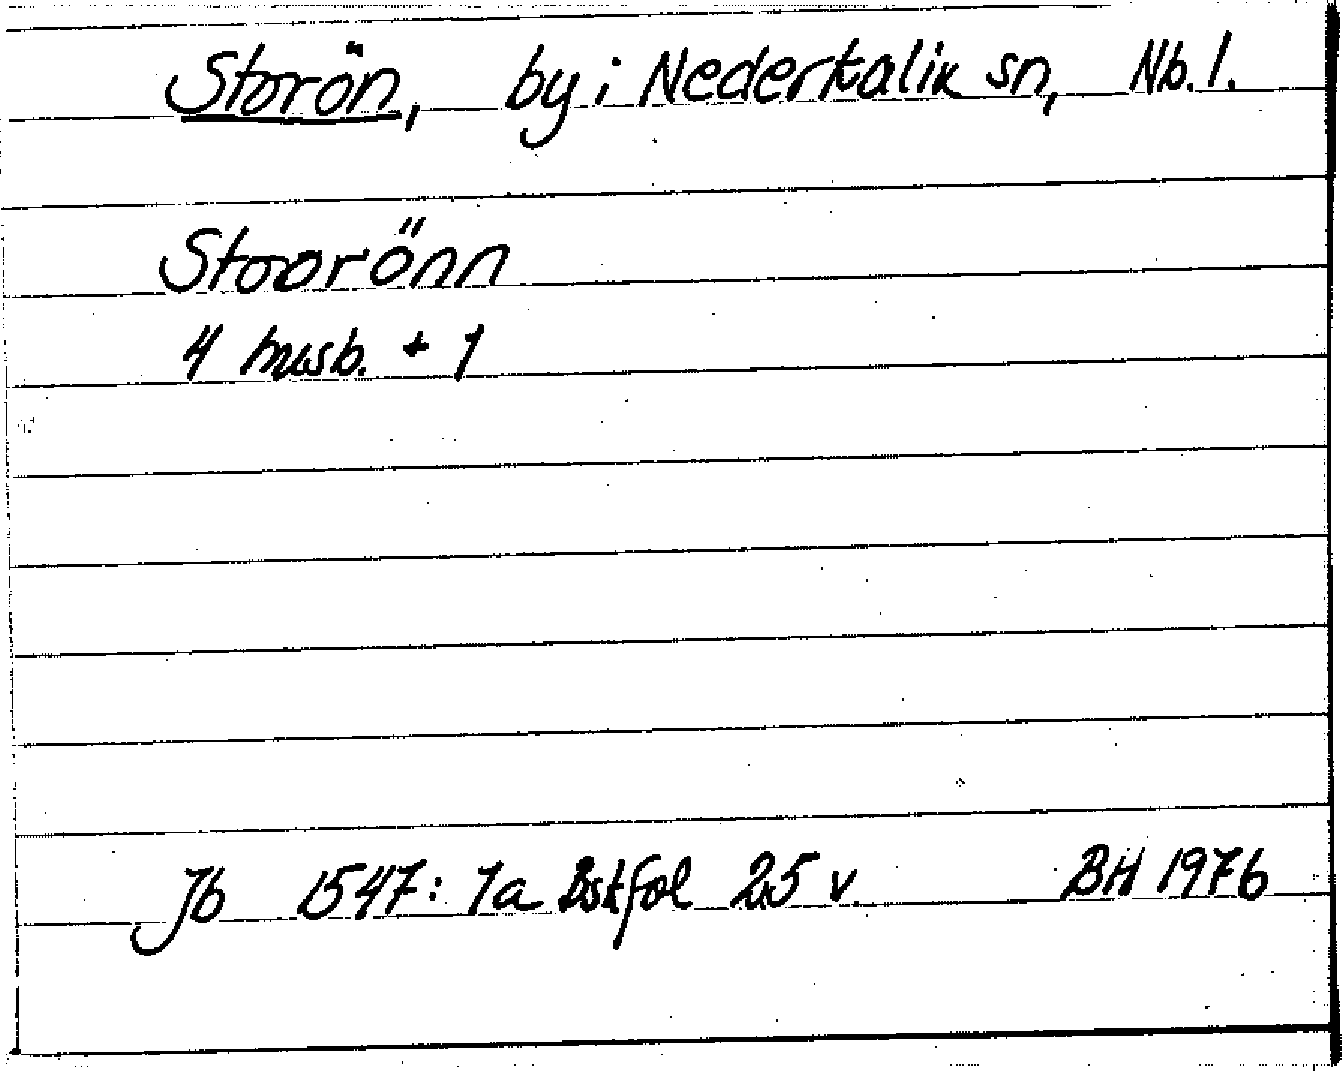 Storön, by i Nederkalix sn, Nb. l.
Stoorönn
4 husb. + 1
Jb 1547: 1a Bskfol 25 v. BH 1976